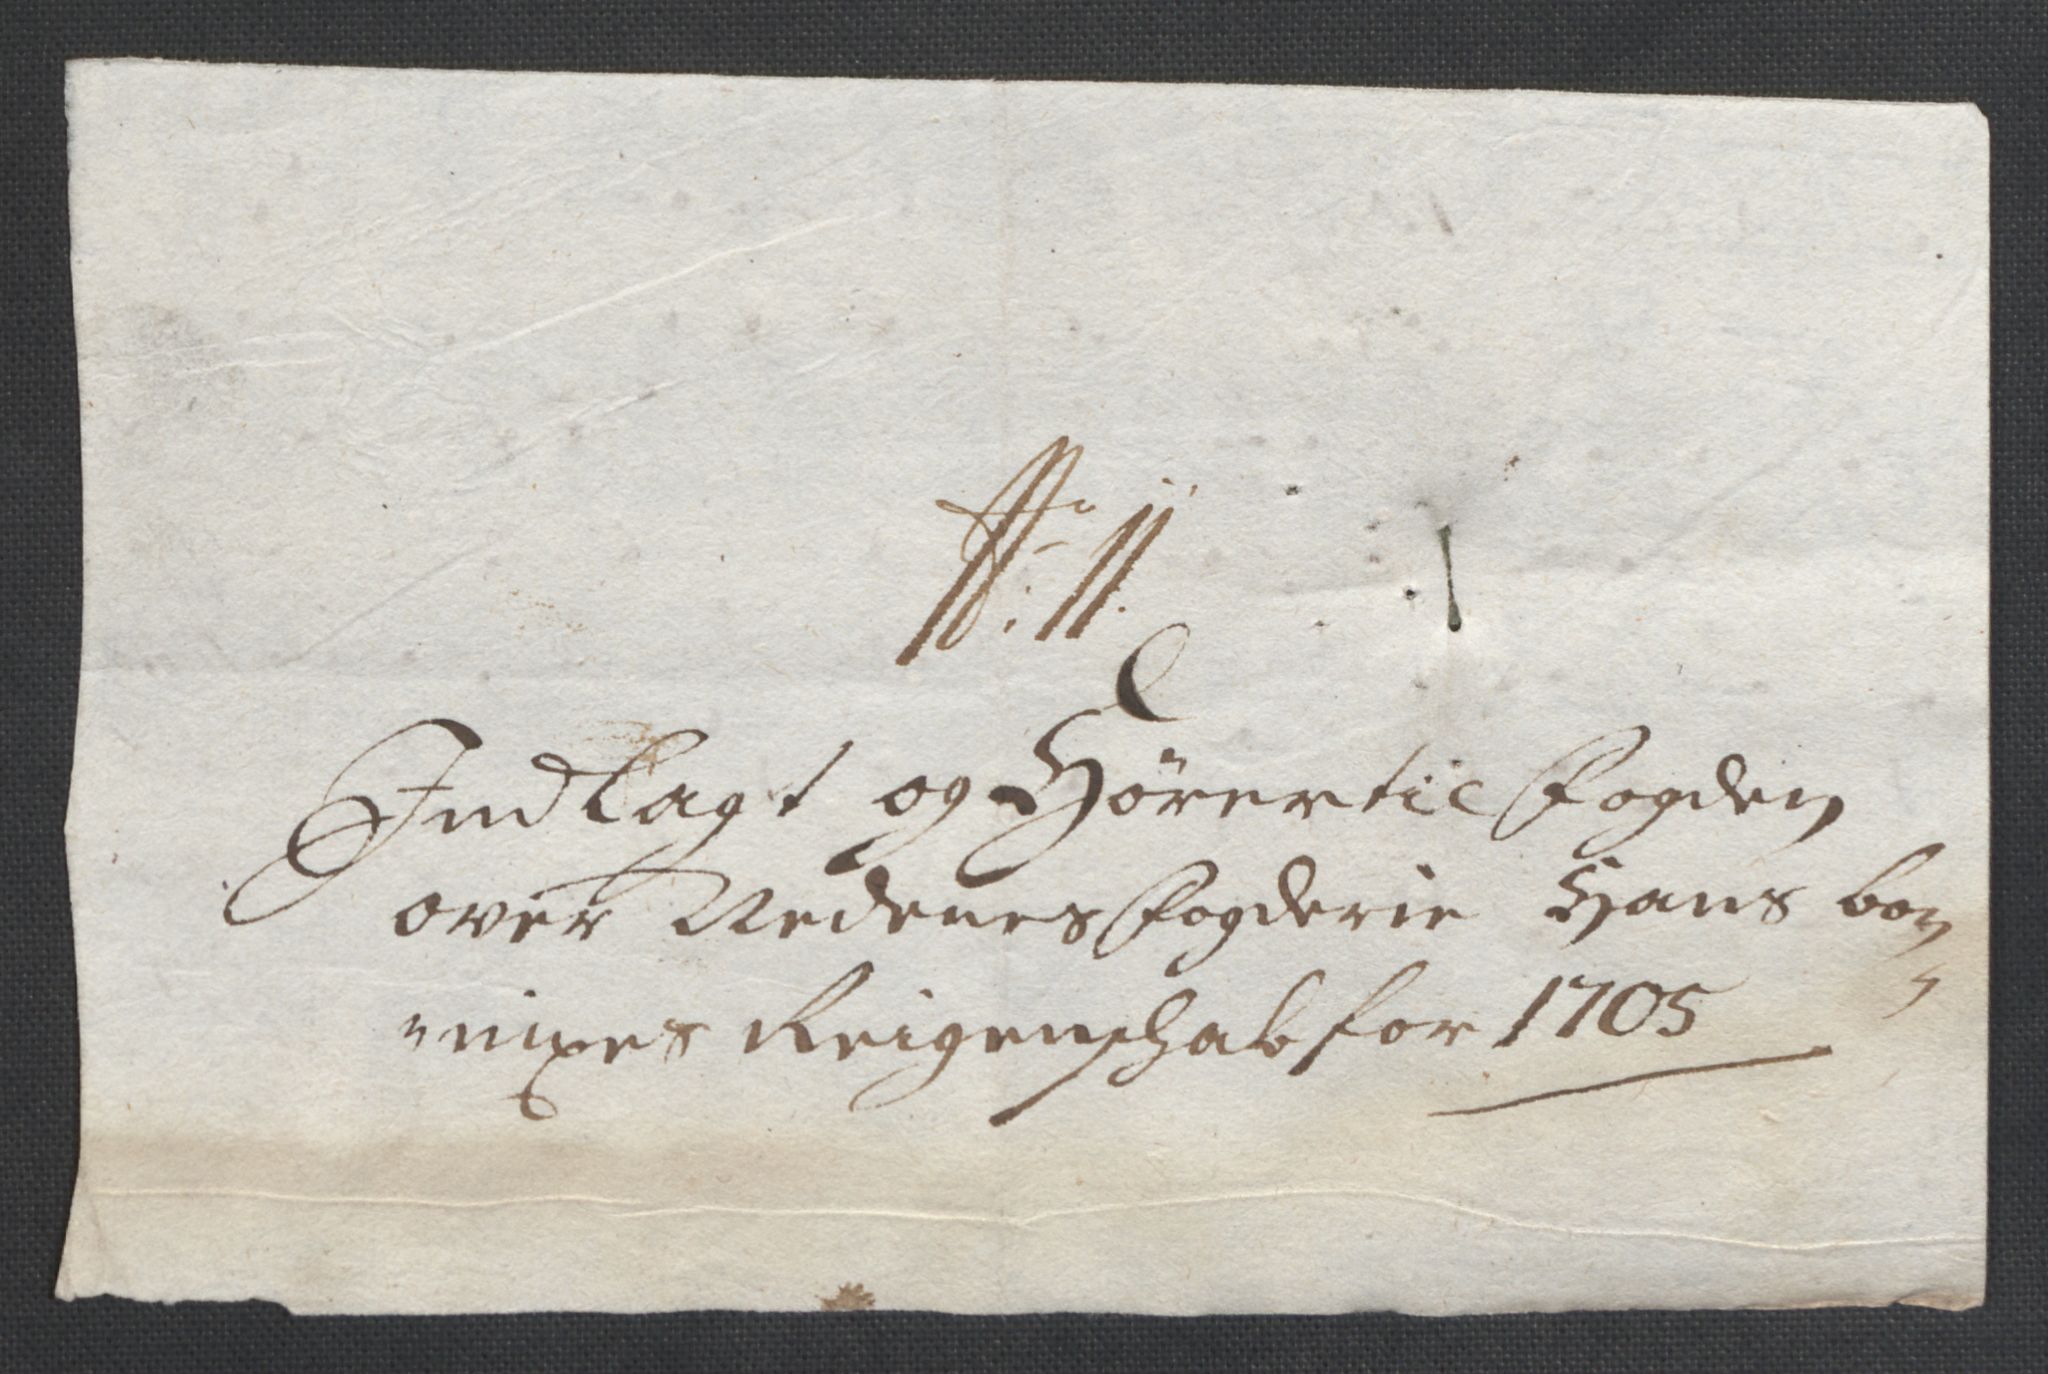 No: 11.
Indlagt og Hörer til Fogden
over Nedenes Fogderie Hans bon
nixes Reigenschab for 1705